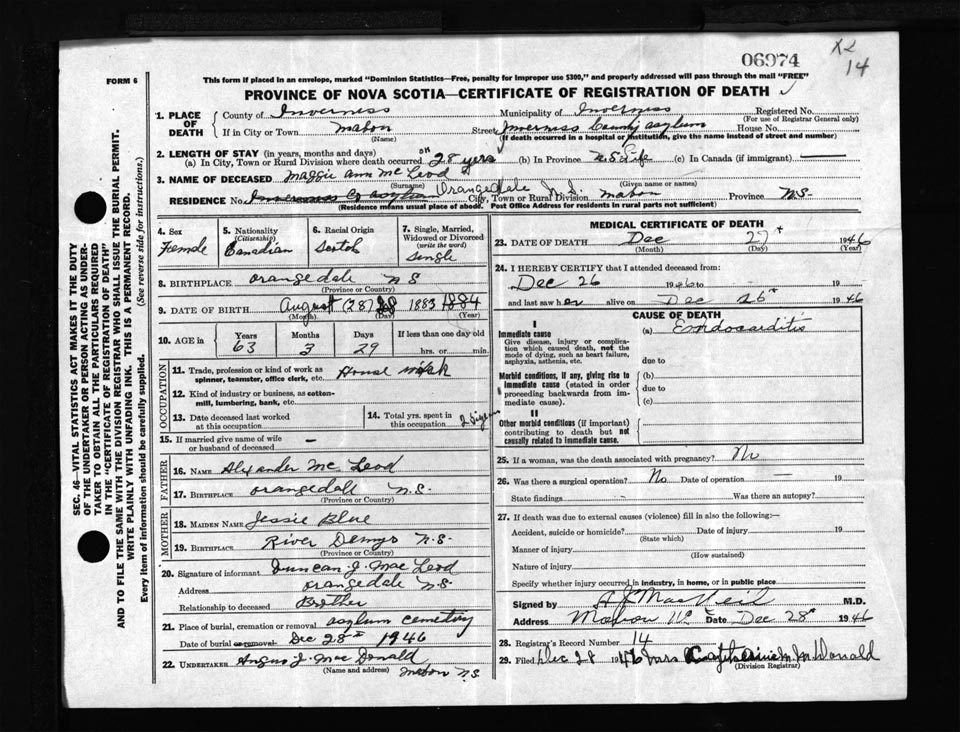 06974
X2
14
FORM 6
This form if placed in an envelope, marked "Dominion Statistics—Free, penalty for improper use $300," and properly addressed will pass through the mail "FREE"
PROVINCE OF NOVA SCOTIA—CERTIFICATE OF REGISTRATION OF DEATH ✓
1. PLACE OF DEATH { County of Inverness Municipality of Inverness Registered No.
(For use of Registrar General only)
If in City or Town Mabou Street Inverness County Asylum House No.
(Name) (If death occurred in a hospital or institution, give the name instead of street and number)
2. LENGTH OF STAY (in years, months and days)
(a) In City, Town or Rural Division where death occurred 28 yrs (b) In Province N.S. Life (c) In Canada (if immigrant) —
3. NAME OF DECEASED Maggie Ann Mc Leod
(Surname) (Given name or names)
RESIDENCE No. Inverness Co asylum Orangedale N.S. City, Town or Rural Division Mabou Province N.S.
(Residence means usual place of abode. Post Office Address for residents in rural parts not sufficient)
4. Sex
Female
5. Nationality
(Citizenship)
Canadian
6. Racial Origin
Scotch
7. Single, Married, Widowed or Divorced
(write the word)
Single
8. BIRTHPLACE Orangedale N S
(Province or Country)
9. DATE OF BIRTH August (28) 28 1883 1884
(Month) (Day) (Year)
10. AGE in { Years Months Days If less than one day old
63 3 29 hrs. or min.
OCCUPATION
11. Trade, profession or kind of work as spinner, teamster, office clerk, etc. House work
12. Kind of industry or business, as cotton-mill, lumbering, bank, etc.
13. Date deceased last worked at this occupation
14. Total yrs. spent in this occupation
15. If married give name of wife or husband of deceased —
FATHER
16. NAME Alexander Mc Leod
17. BIRTHPLACE Orangedale N.S.
(Province or Country)
MOTHER
18. MAIDEN NAME Jessie Blue
19. BIRTHPLACE River Denys N.S.
(Province or Country)
20. Signature of informant Duncan J. Mac Leod
Address Orangedale N.S.
Relationship to deceased Brother
21. Place of burial, cremation or removal asylum cemetery
Date of burial or removal Dec 28th 1946
22. UNDERTAKER Angus J. Mac Donald
(Name and address) Mabou N.S.
MEDICAL CERTIFICATE OF DEATH
23. DATE OF DEATH Dec 27th 1946
(Month) (Day) (Year)
24. I HEREBY CERTIFY that I attended deceased from:
Dec 26 1946 to 19
and last saw her alive on Dec 26th 1946
CAUSE OF DEATH
I
Immediate cause
Give disease, injury or complication which caused death, not the mode of dying, such as heart failure, asphyxia, asthenia, etc.
(a) Endocarditis
due to
Morbid conditions, if any, giving rise to immediate cause (stated in order proceeding backwards from immediate cause).
(b)
due to
(c)
II
Other morbid conditions (if important) contributing to death but not causally related to immediate cause.
25. If a woman, was the death associated with pregnancy? No
26. Was there a surgical operation? No Date of operation — 19
State findings Was there an autopsy?
27. If death was due to external causes (violence) fill in also the following:—
Accident, suicide or homicide? Date of injury 19
(State which)
Manner of injury
(How sustained)
Nature of injury
Specify whether injury occurred in industry, in home, or in public place
Signed by A J MacNeil M.D.
Address Mabou N.S. Date Dec 28th 1946
28. Registrar's Record Number 14
29. Filed Dec 28 1946 Mrs Catherine M. McDonald
(Division Registrar)
SEC. 46—VITAL STATISTICS ACT MAKES IT THE DUTY
OF THE UNDERTAKER OR PERSON ACTING AS UNDER-
TAKER TO OBTAIN ALL THE PARTICULARS REQUIRED
IN THE "CERTIFICATE OF REGISTRATION OF DEATH"
AND TO FILE THE SAME WITH THE DIVISION REGISTRAR WHO SHALL ISSUE THE BURIAL PERMIT.
WRITE PLAINLY WITH UNFADING INK. THIS IS A PERMANENT RECORD.
Every item of information should be carefully supplied. (See reverse side for instructions.)